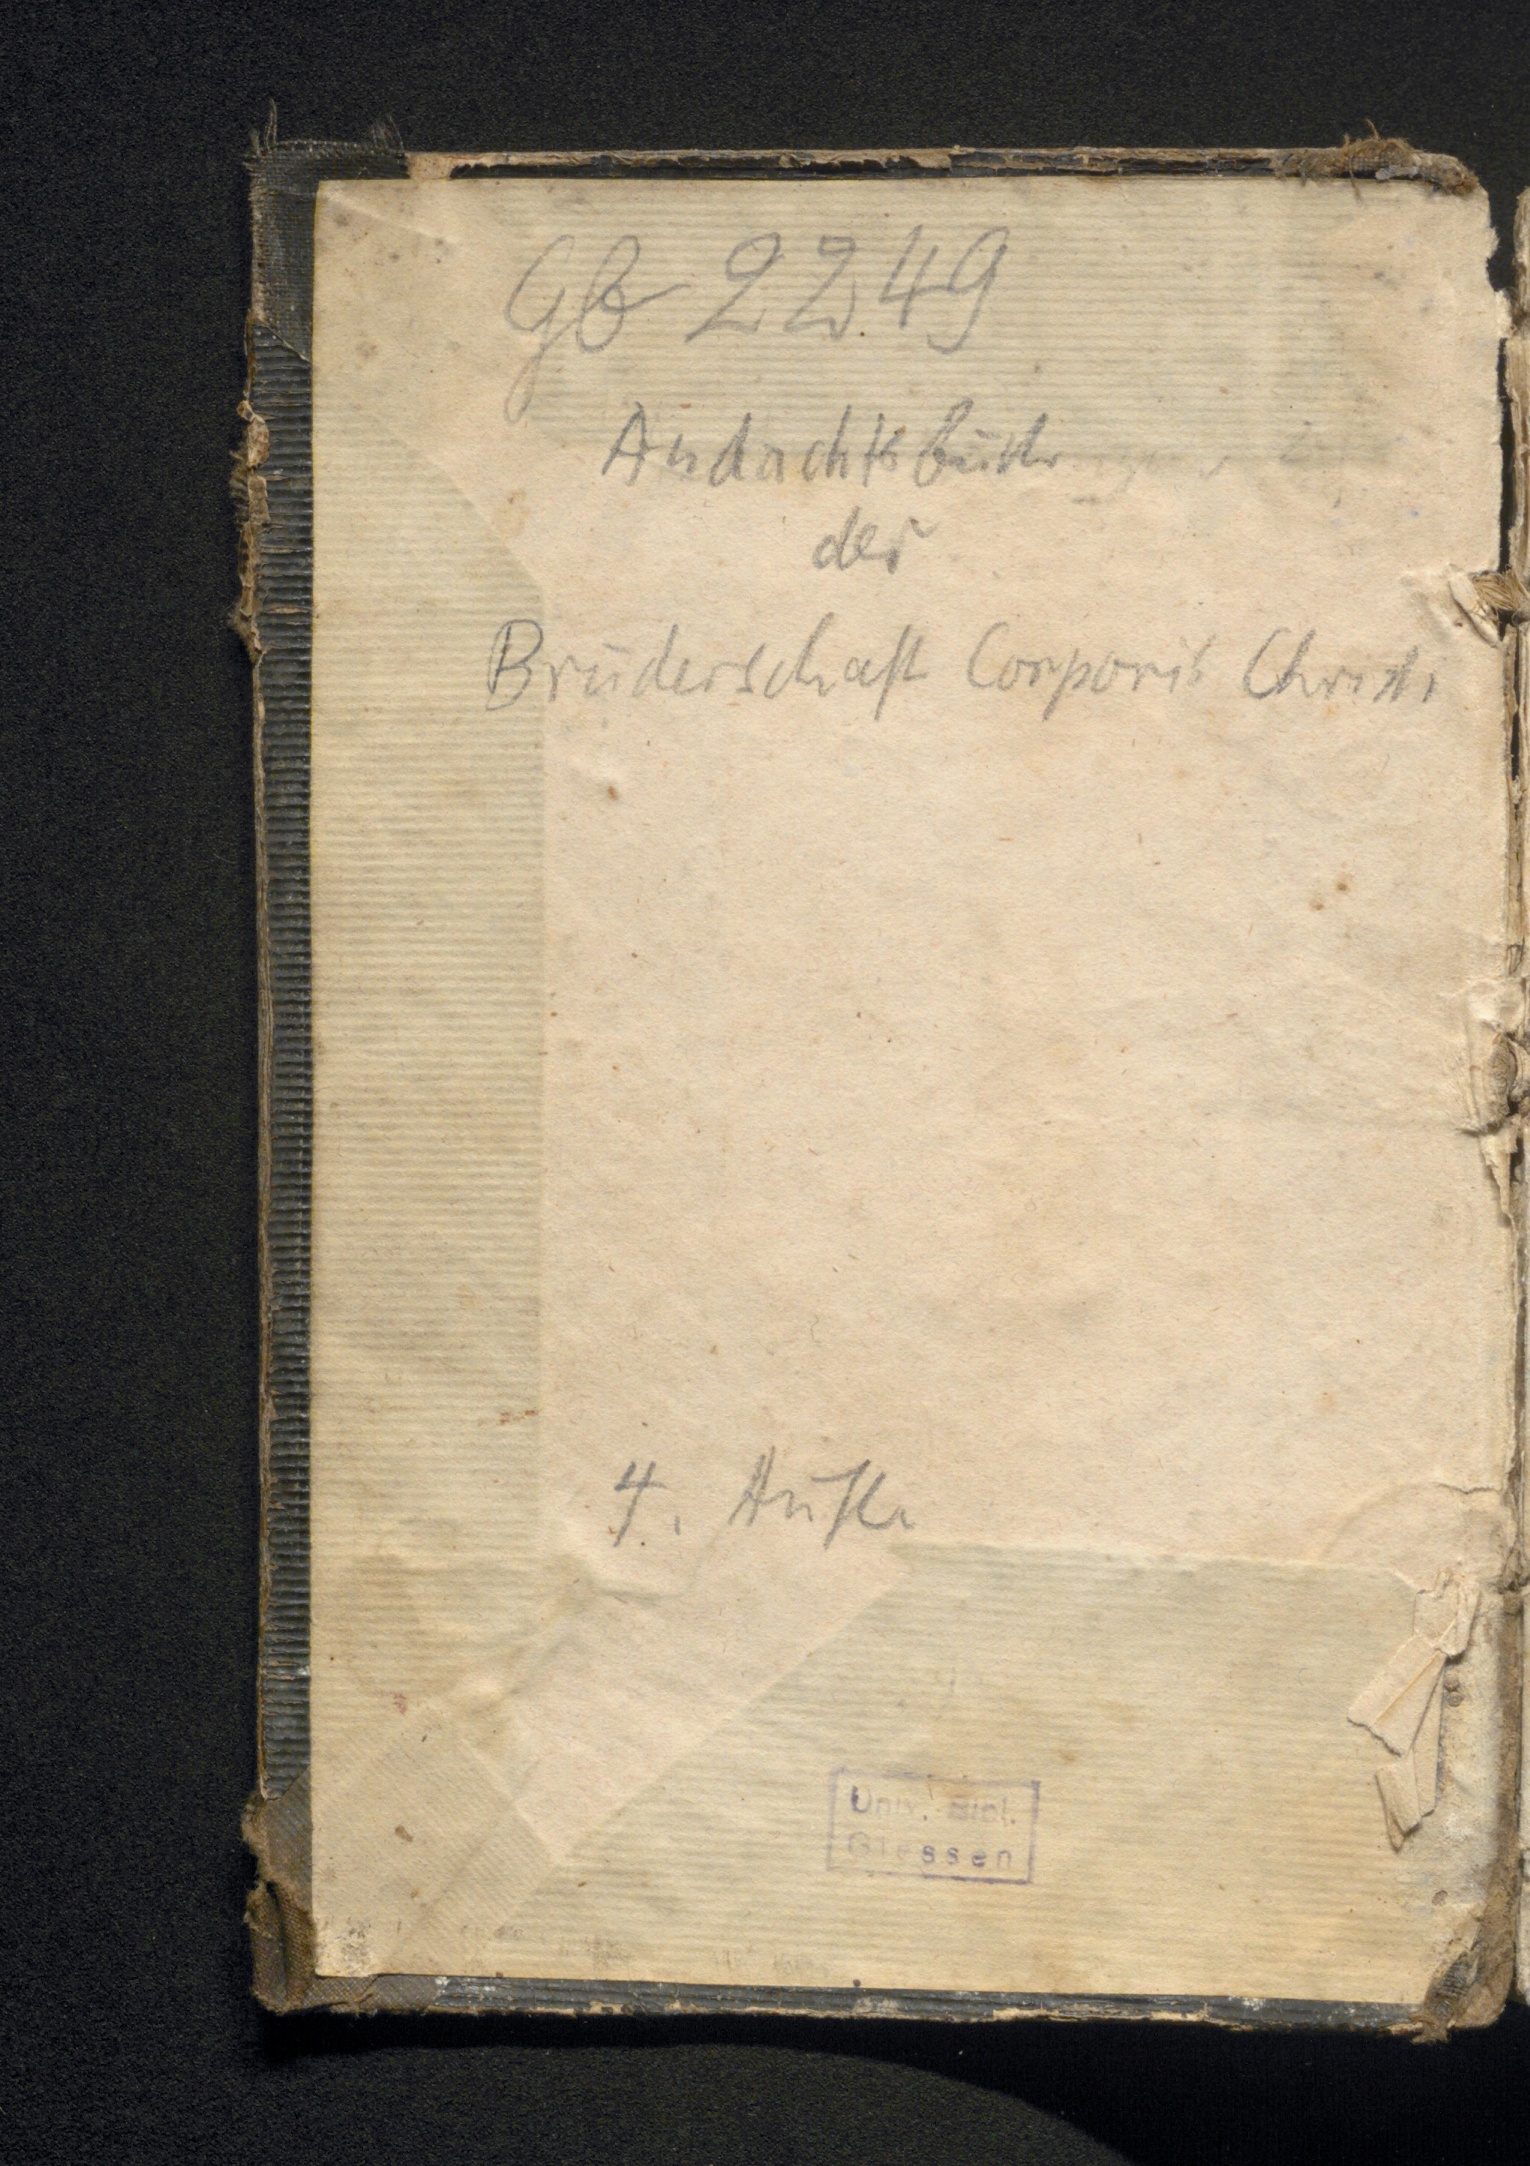 Gb 2249
Andachtsbuch
der
Bruderschaft Corporis Christi
4. Aufl.
Univ. Bibl.
Giessen